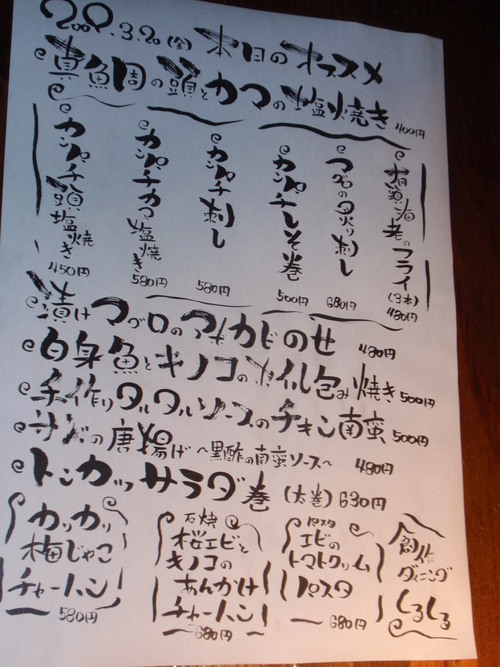 2009.3.20(金) 本日のオススメ
真鯛の頭とカマの塩焼き 400円
有頭海老のフライ
(3本)
480円
マグロの炙り刺し
680円
カンパチしそ巻
500円
カンパチ刺し
580円
カンパチカマ塩焼き
580円
カンパチ頭塩焼き
450円
漬けマグロのアボカドのせ 480円
白身魚とキノコのホイル包み焼き 500円
手作りタルタルソースのチキン南蛮 500円
サバの唐揚げ ～黒酢の南蛮ソース～ 480円
トンカツサラダ巻 (太巻) 630円
カリカリ
梅じゃこ
チャーハン
580円
石焼
桜エビと
キノコの
あんかけ
チャーハン
680円
パスタ
エビの
トマトクリーム
パスタ
680円
創作
ダイニング
くるくる